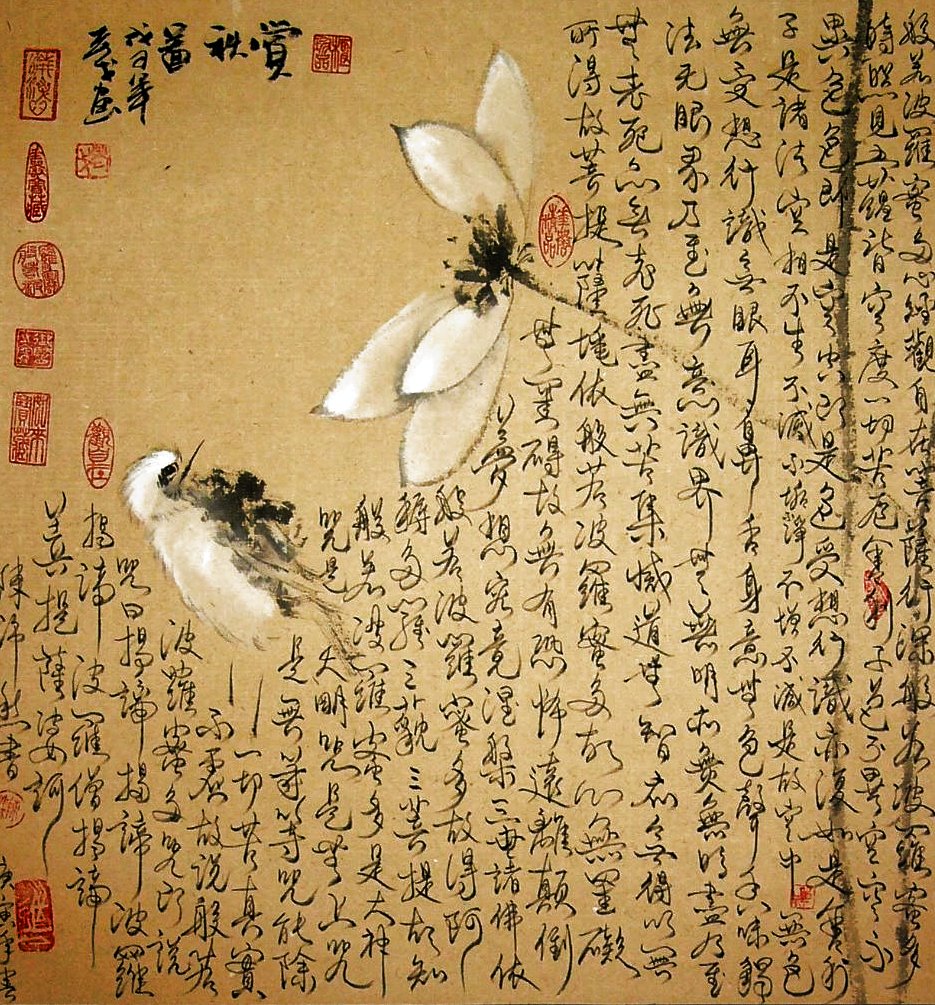 般若波羅蜜多心經觀自在菩薩行深般若波羅蜜多
時照見五蘊皆空度一切苦厄舍利子色不異空空不
異色色即是空空即是色受想行識亦復如是舍利
子是諸法空相不生不滅不垢淨不增不減是故空中無色
無受想行識無眼耳鼻舌身意無色聲香味觸
法无眼界乃至無意識界無無明亦無無明盡乃至
無老死亦無老死盡無苦集滅道無智亦無得以無
所得故菩提薩埵依般若波羅蜜多故心無罣礙
無罣礙故無有恐怖遠離顛倒
夢想究竟涅槃三世諸佛依
般若波羅蜜多故得阿
耨多羅三藐三菩提故知
般若波羅蜜多是大神
咒是大明咒是無上咒
是無等等咒能除
一切苦真實
不虛故說般若
波羅蜜多咒即說
咒曰揭諦揭諦波羅
揭諦波羅僧揭諦
菩提薩婆訶
書
庚寅年書
賞秋圖
戊子年
畫
觀自在